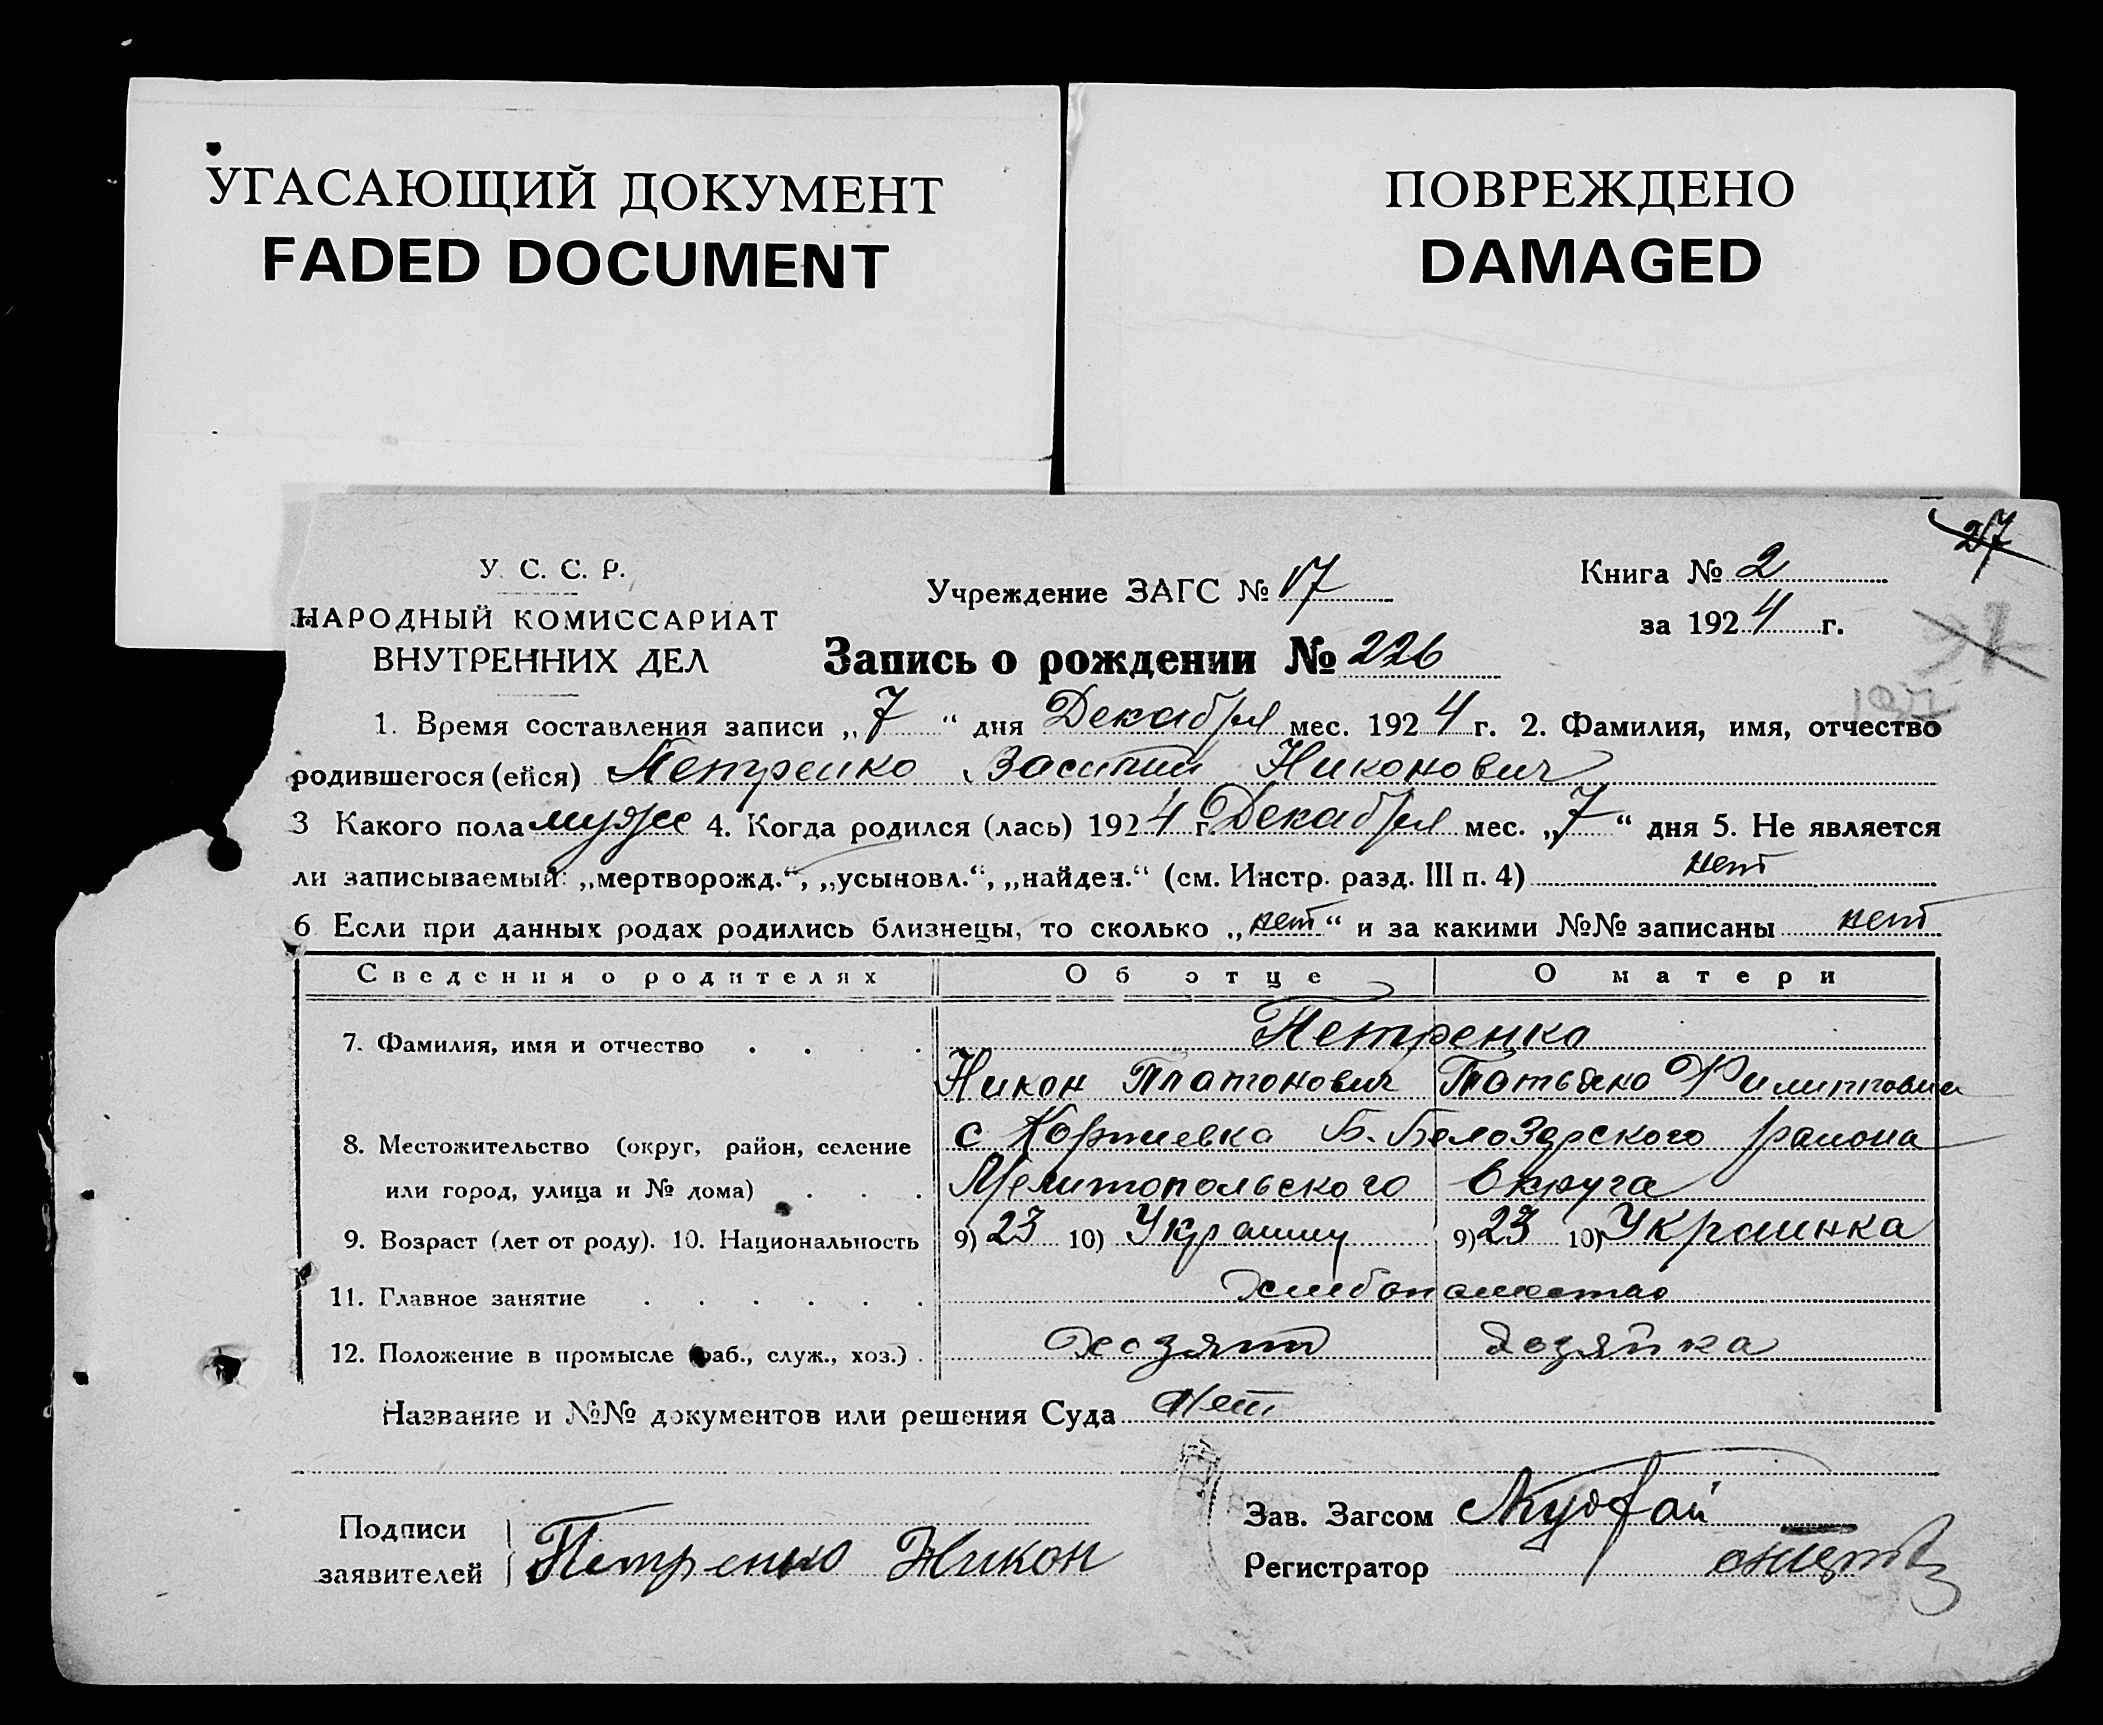 УГАСАЮЩИЙ ДОКУМЕНТ
FADED DOCUMENT
ПОВРЕЖДЕНО
DAMAGED
27
У. С. С. Р.
НАРОДНЫЙ КОМИССАРИАТ
ВНУТРЕННИХ ДЕЛ
Учреждение ЗАГС № 17
Книга № 2
за 1924 г.
Запись о рождении № 226
1. Время составления записи „7“ дня Декабря мес. 1924 г. 2. Фамилия, имя, отчество
родившегося (ейся) Петренко Василий Никонович
3 Какого пола муж 4. Когда родился (лась) 1924 г. Декабря мес. „7“ дня 5. Не является
ли записываемый: „мертворожд.“, „усыновл.“, „найден.“ (см. Инстр. разд. III п. 4) нет
6 Если при данных родах родились близнецы, то сколько „нет“ и за какими №№ записаны нет
Сведения о родителях Об отце О матери
7. Фамилия, имя и отчество . . . . Петренко
Никон Платонович Татьяна Филипповна
8. Местожительство (округ, район, селение с Б. Белозерского района
или город, улица и № дома) . . . Мелитопольского Округа
9. Возраст (лет от роду). 10. Национальность 9) 23 10) Украинц 9) 23 10) Украинка
11. Главное занятие . . . . . .
12. Положение в промысле (раб., служ., хоз.) . хозяин хозяйка
Название и №№ документов или решения Суда Нет
Подписи
заявителей Петренко Никон
Зав. Загсом
Регистратор